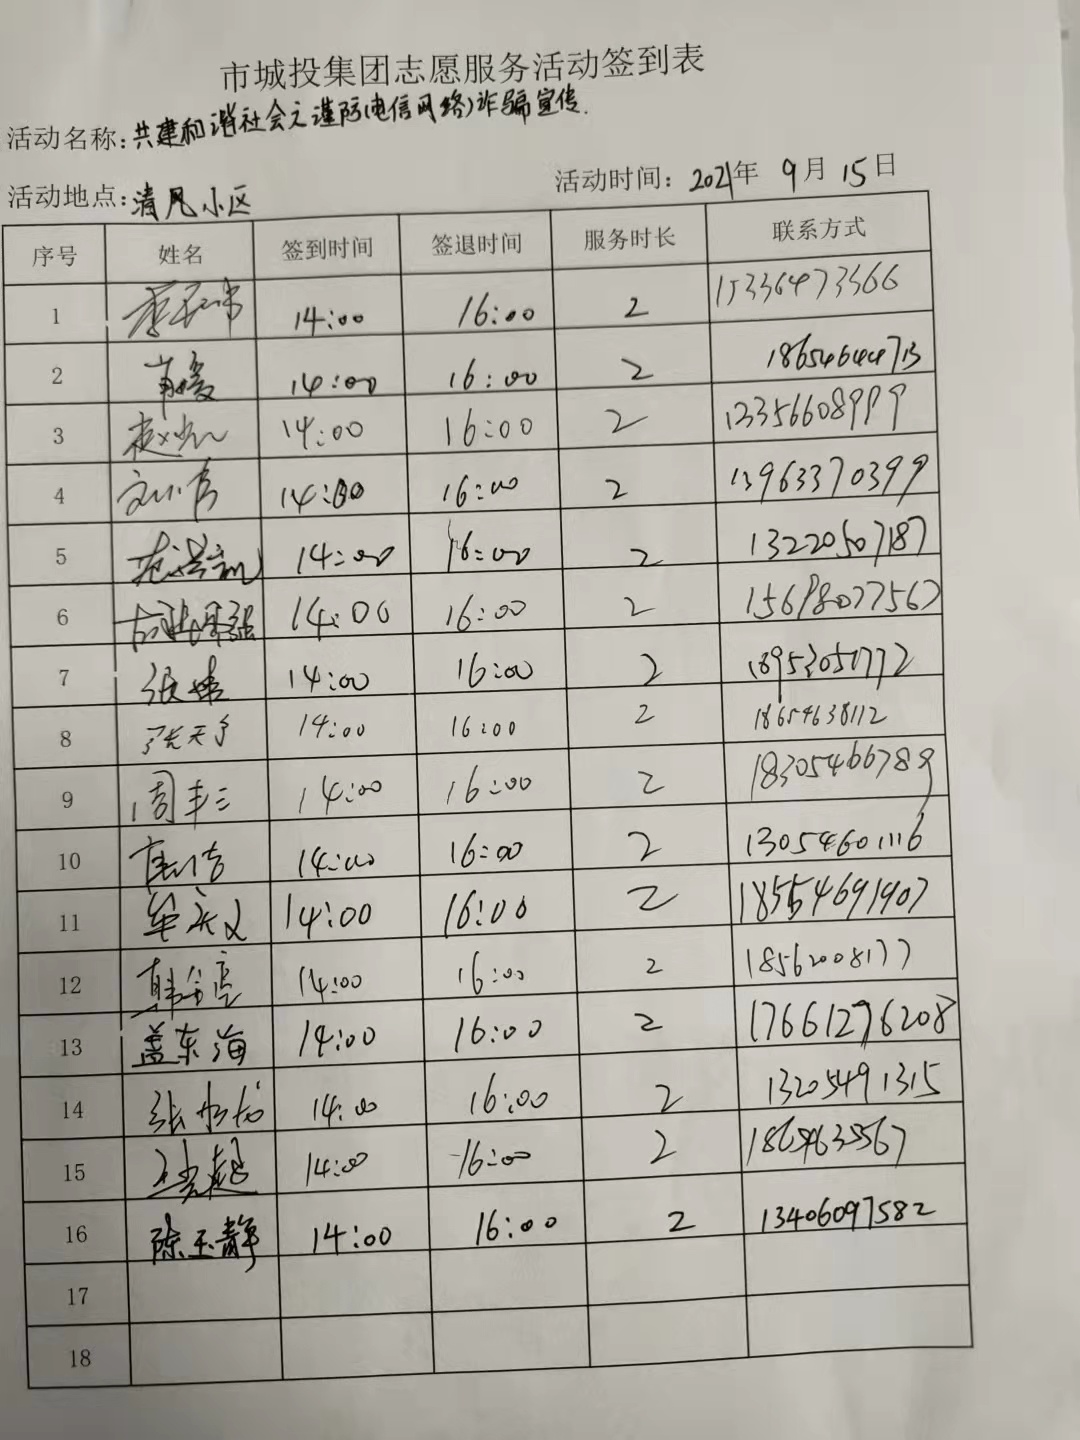 市城投集团志愿服务活动签到表
活动名称:共建和谐社会之谨防(电信网络)诈骗宣传.
活动地点:清风小区 活动时间: 2021年 9月 15日
序号 姓名 签到时间 签退时间 服务时长 联系方式
1 14:00 16:00 2 15336473566
2 肖媛 14:00 16:00 2 18654644713
3 14:00 16:00 2
4 14:00 16:00 2 13963370399
5 14:00 16:00 2 13220507187
6 14:00 16:00 2 15698077567
7 张娟 14:00 16:00 2 18953051772
8 张天宁 14:00 16:00 2 18654638112
9 周丰三 14:00 16:00 2 18305466789
10 14:00 16:00 2 13054601116
11 14:00 16:00 2 18554691907
12 14:00 16:00 2 18562008177
13 盖东海 14:00 16:00 2 17661276208
14 14:00 16:00 2 13205491315
15 14:00 16:00 2
16 陈玉静 14:00 16:00 2 13406097582
17
18